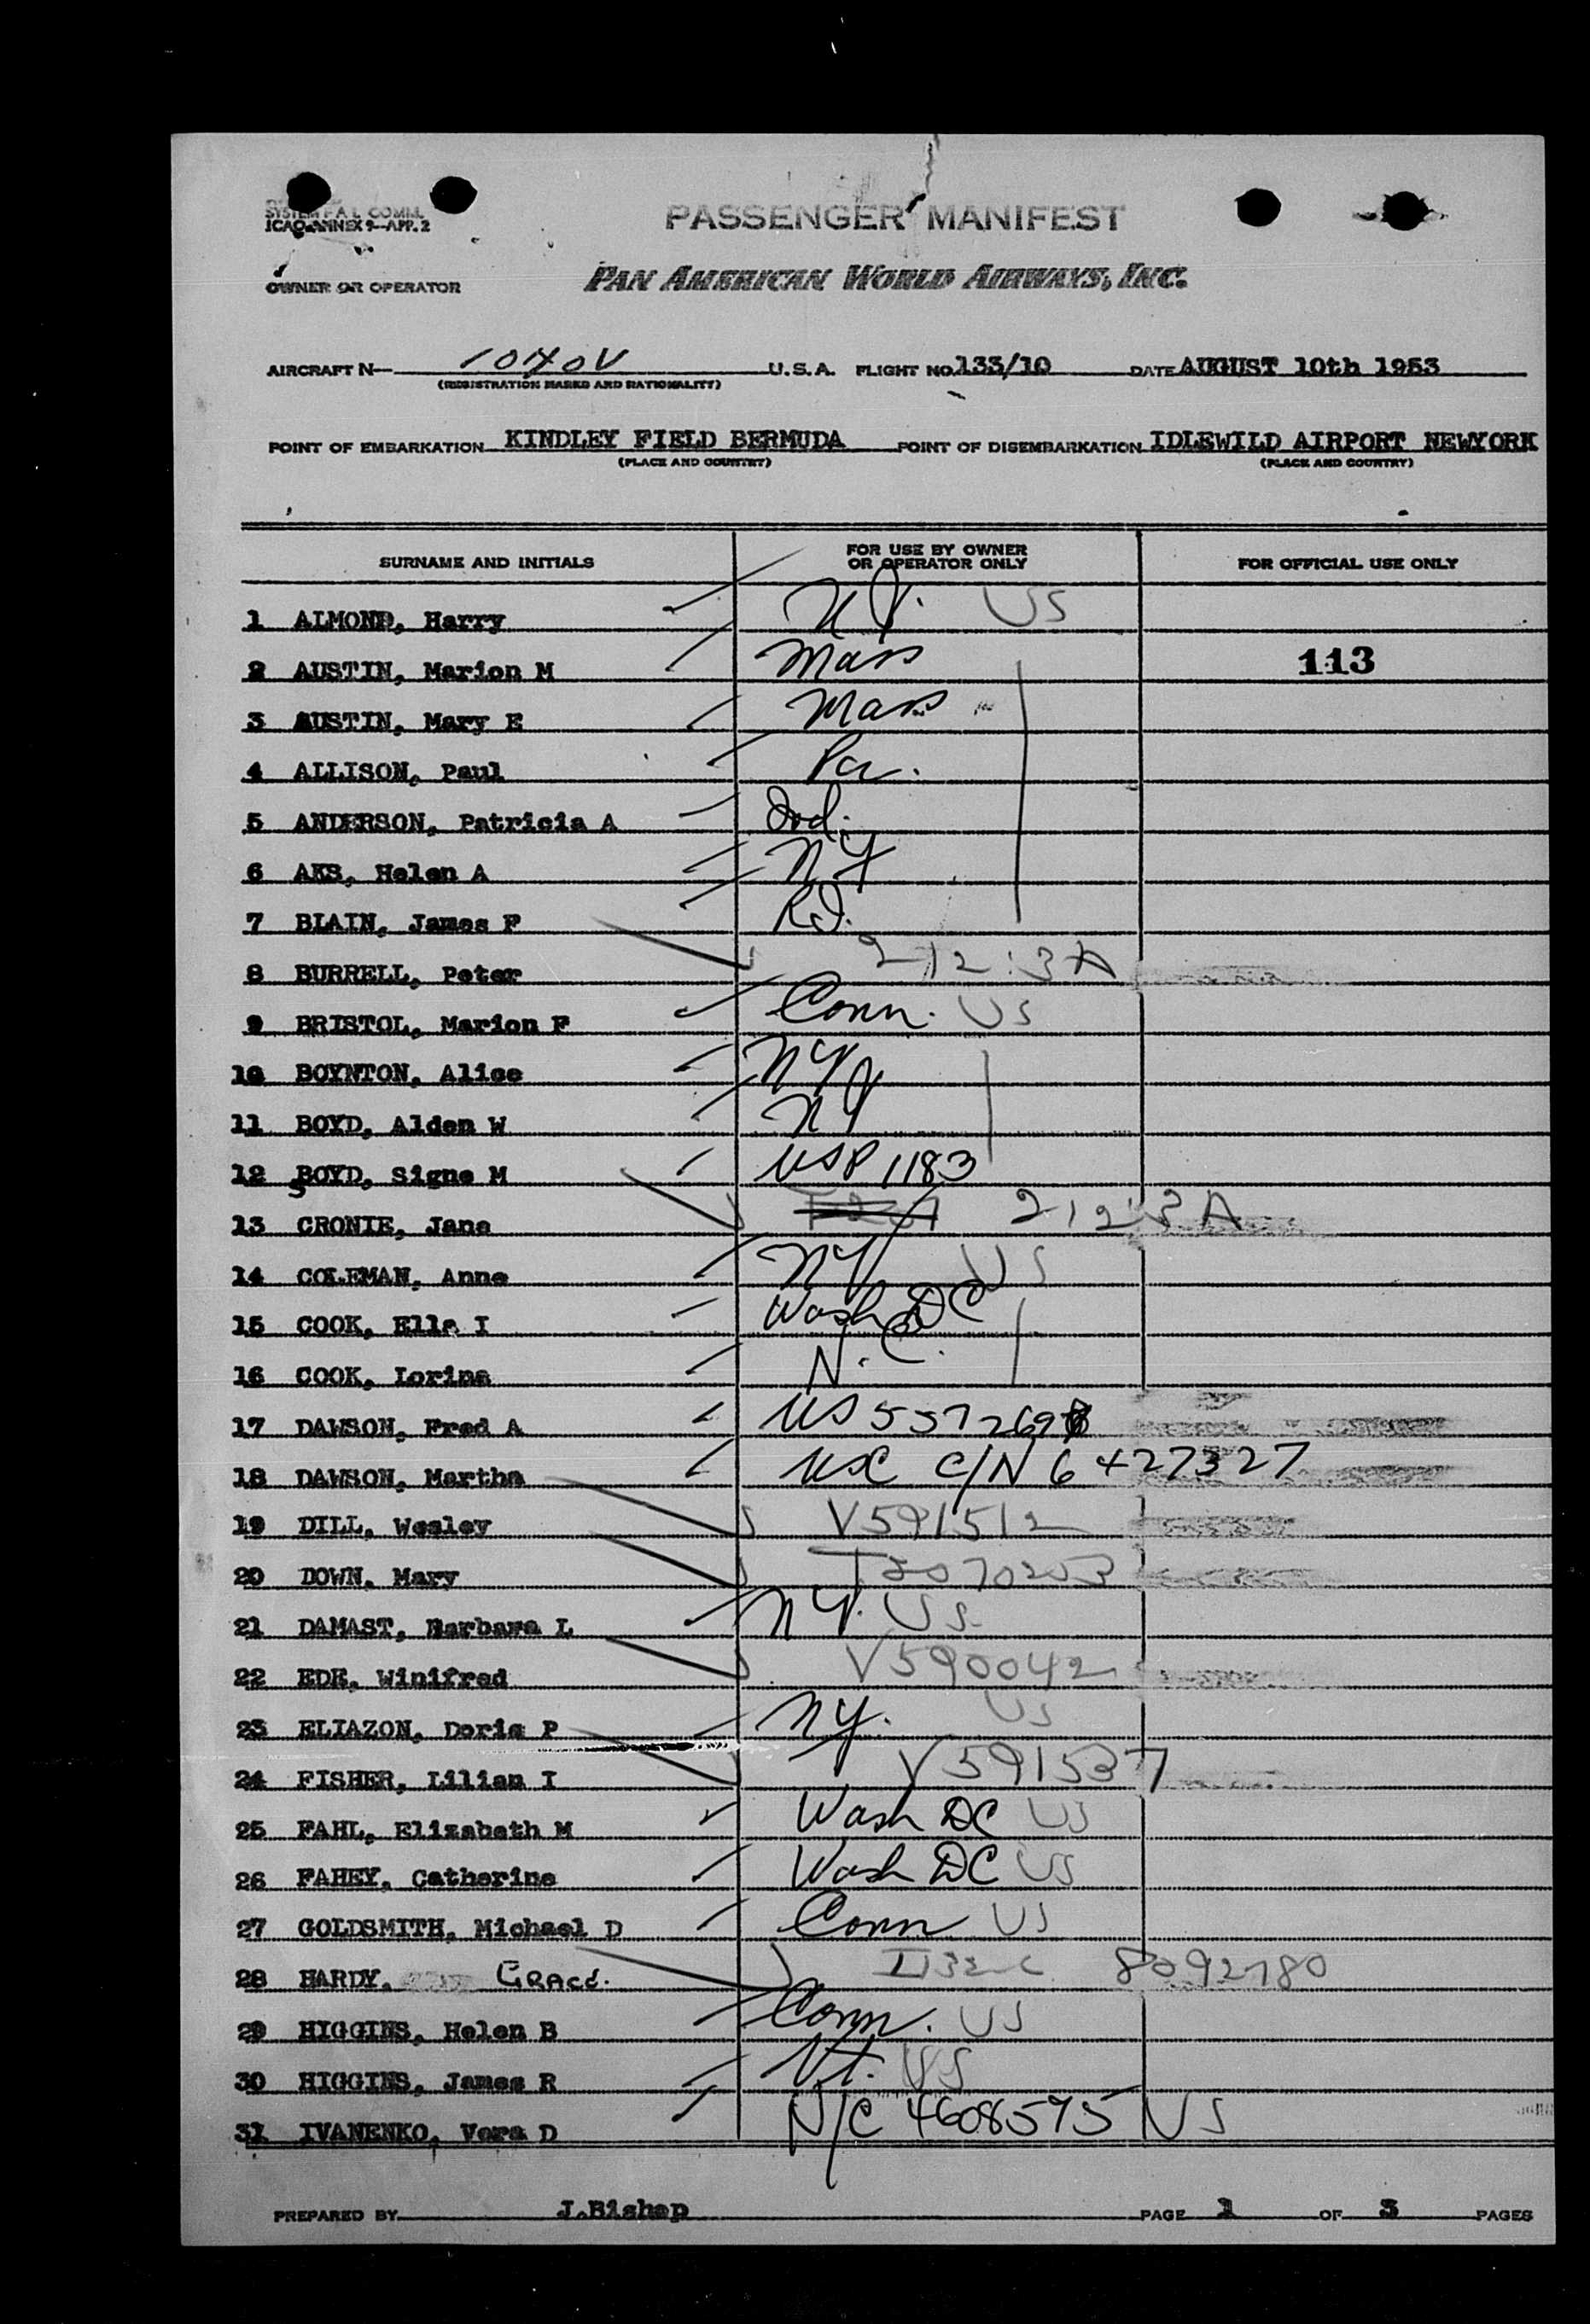 SYSTEM F.A.L. COMM.
ICAO ANNEX 9—APP. 2
PASSENGER MANIFEST
OWNER OR OPERATOR PAN AMERICAN WORLD AIRWAYS, INC.
AIRCRAFT N— 1040V U.S.A. FLIGHT NO. 133/10 DATE AUGUST 10th 1953
(REGISTRATION MARKS AND NATIONALITY)
POINT OF EMBARKATION KINDLEY FIELD BERMUDA POINT OF DISEMBARKATION IDLEWILD AIRPORT NEWYORK
(PLACE AND COUNTRY) (PLACE AND COUNTRY)
SURNAME AND INITIALS FOR USE BY OWNER OR OPERATOR ONLY FOR OFFICIAL USE ONLY
1 ALMOND, Harry N.Y. US
2 AUSTIN, Marion M Mass 113
3 AUSTIN, Mary E Mass
4 ALLISON, Paul Pa.
5 ANDERSON, Patricia A Ind.
6 AKS, Helen A NY
7 BLAIN, James F R.I.
8 BURRELL, Peter 212.3A
9 BRISTOL, Marion F Conn. US
10 BOYNTON, Alice NY
11 BOYD, Alden W NY
12 BOYD, Signe M USP 1183
13 CRONIE, Jane 212.3A
14 COLEMAN, Anne NY US
15 COOK, Ella I Wash DC
16 COOK, Lorina N.C.
17 DAWSON, Fred A US 557269
18 DAWSON, Martha USC C/N 6427327
19 DILL, Wesley V591512
20 DOWN, Mary
21 DAMAST, Barbara L NY. US.
22 EDE, Winifred V590042
23 ELIAZON, Doris P NY. US
24 FISHER, Lilian I V591537
25 FAHL, Elizabeth M Wash DC US
26 FAHEY, Catherine Wash DC US
27 GOLDSMITH, Michael D Conn US
28 HARDY, GRACE. 8092780
29 HIGGINS, Helen B Conn. US
30 HIGGINS, James R Vt. US
31 IVANENKO, Vera D N/C 4608595 US
PREPARED BY J.Bishop PAGE 1 OF 3 PAGES